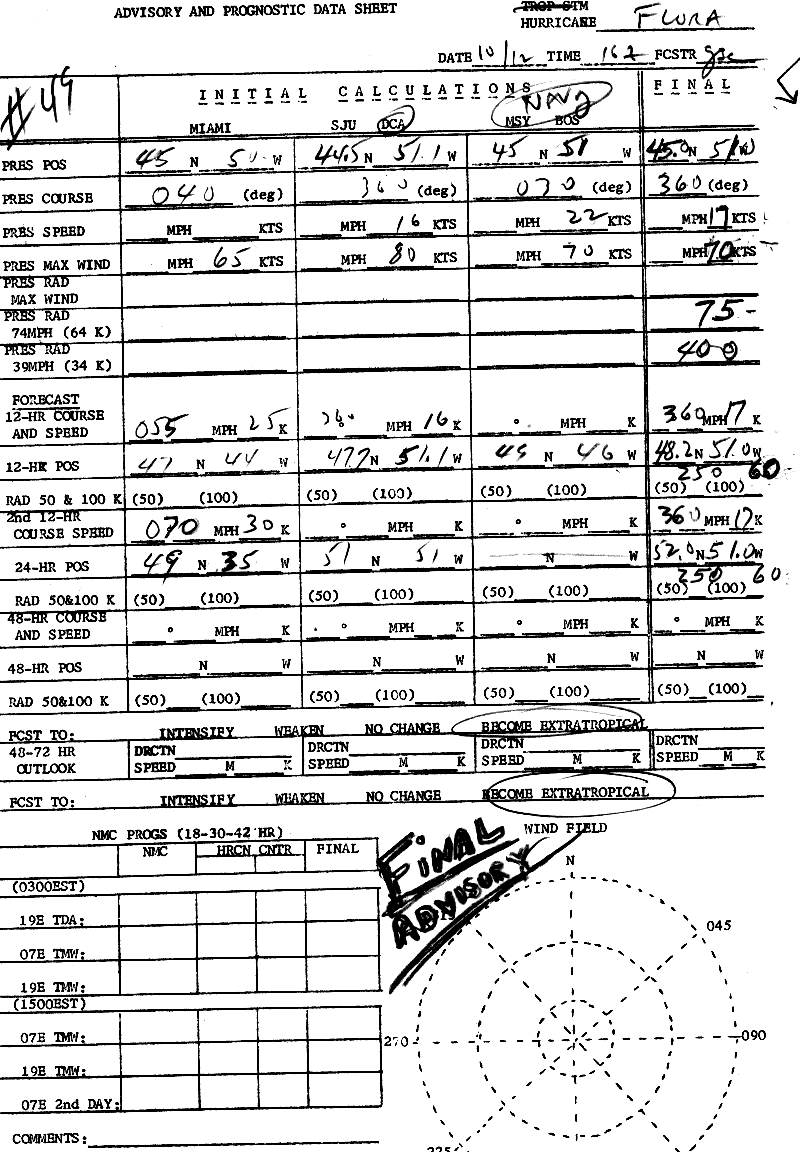 ADVISORY AND PROGNOSTIC DATA SHEET
TROP STM
HURRICANE FLORA
DATE 10/12 TIME 16Z FCSTR
#49
INITIAL CALCULATIONS FINAL
NAVY
MIAMI SJU DCA MSY BOS
PRES POS 45 N 50 W 44.5 N 51.1 W 45 N 51 W 45.0 N 51 W
PRES COURSE 040 (deg) 360 (deg) 030 (deg) 360 (deg)
PRES SPEED MPH KTS MPH 16 KTS MPH 22 KTS MPH 17 KTS
PRES MAX WIND MPH 65 KTS MPH 80 KTS MPH 70 KTS MPH 70 KTS
PRES RAD
MAX WIND
PRES RAD
74MPH (64 K) 75
PRES RAD
39MPH (34 K) 400
FORECAST
12-HR COURSE
AND SPEED 055 MPH 25 K 360 MPH 16 K ° MPH K 360 MPH 17 K
12-HR POS 47 N 44 W 47.7 N 51.1 W 49 N 46 W 48.2 N 51.0 W
250 60
RAD 50 & 100 K (50) (100) (50) (100) (50) (100) (50) (100)
2nd 12-HR
COURSE SPEED 070 MPH 30 K ° MPH K ° MPH K 360 MPH 17 K
24-HR POS 49 N 35 W 51 N 51 W N W 52.0 N 51.0 W
250 60
RAD 50&100 K (50) (100) (50) (100) (50) (100) (50) (100)
48-HR COURSE
AND SPEED ° MPH K ° MPH K ° MPH K ° MPH K
48-HR POS N W N W N W N W
RAD 50&100 K (50) (100) (50) (100) (50) (100) (50) (100)
FCST TO: INTENSIFY WEAKEN NO CHANGE BECOME EXTRATROPICAL
48-72 HR DRCTN DRCTN DRCTN DRCTN
OUTLOOK SPEED M K SPEED M K SPEED M K SPEED M K
FCST TO: INTENSIFY WEAKEN NO CHANGE BECOME EXTRATROPICAL
NMC PROGS (18-30-42 HR)
NMC HRCN CNTR FINAL
(0300EST)
19E TDA:
07E TMW:
19E TMW:
(1500EST)
07E TMW:
19E TMW:
07E 2nd DAY:
COMMENTS:
FINAL
ADVISORY
WIND FIELD
N
045
270
090
225